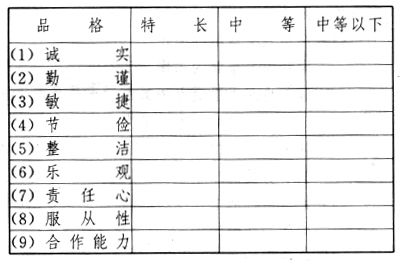 品格 特长 中等 中等以下
(1)诚实
(2)勤谨
(3)敏捷
(4)节俭
(5)整洁
(6)乐观
(7)责任心
(8)服从性
(9)合作能力